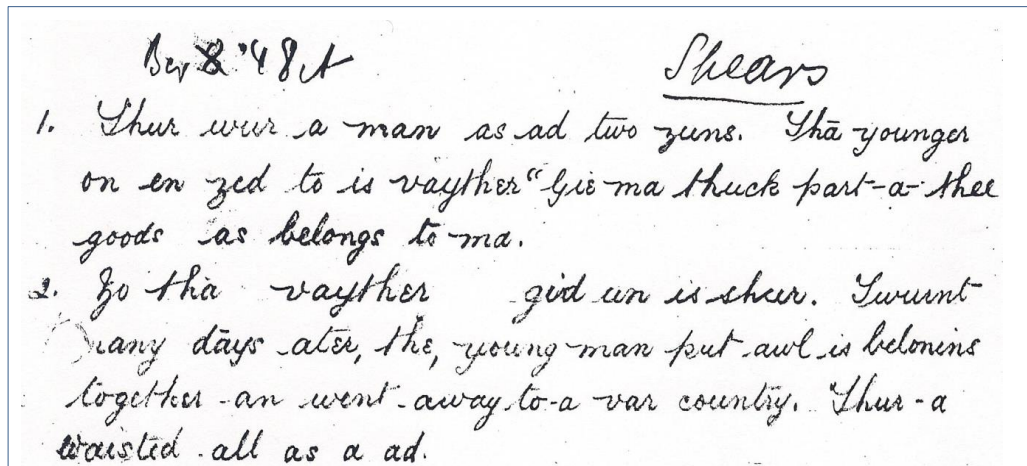 Shears
1. Thur wur a man as ad two zuns. Thā younger
on en zed to is vayther "Gie ma thuck part-a-thee
goods as belongs to ma.
2. Zo tha vayther gid un is sheer. Twurnt
many days ater, the, young man put awl is belonins
together an went away to a var country. Thur a
waisted all as a ad.